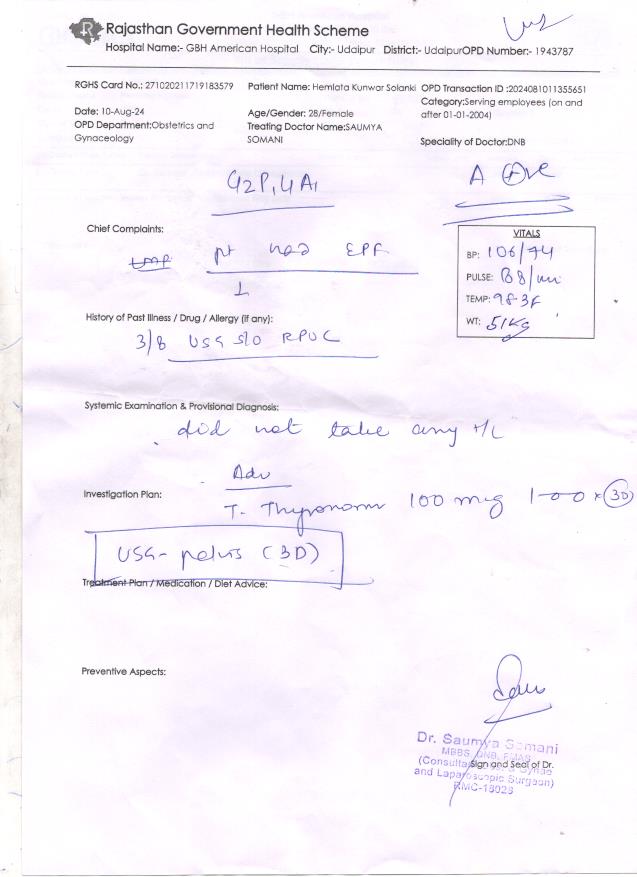 Rajasthan Government Health Scheme
Hospital Name:- GBH American Hospital City:- Udaipur District:- UdaipurOPD Number:- 1943787
RGHS Card No.: 271020211719183579 Patient Name: Hemlata Kunwar Solanki OPD Transaction ID :2024081011355651
Category:Serving employees (on and after 01-01-2004)
Date: 10-Aug-24 Age/Gender: 28/Female
OPD Department:Obstetrics and Gynaceology Treating Doctor Name:SAUMYA SOMANI
Speciality of Doctor:DNB
G2P1L1A1 A +ve
Chief Complaints:
LMP pt had EPF
VITALS
BP: 106/74
PULSE: 88/min
TEMP: 98.3F
WT: 51Kg
History of Past Illness / Drug / Allergy (if any):
3/8 USG s/o RPOC
Systemic Examination & Provisional Diagnosis:
did not take any t/t
Adv
Investigation Plan:
T. Thyronorm 100 mcg 1-0-0 x 30
USG- pelvis (3D)
Treatment Plan / Medication / Diet Advice:
Preventive Aspects:
Dr. Saumya Somani
MBBS, DNB, FMAS
(Consultant Gynae
Sign and Seal of Dr.
and Laparoscopic Surgeon)
RMC-18026